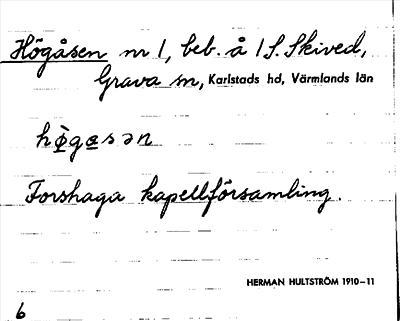 Högåsen nr 1, beb. å 1 S. Skived,
Grava sn, Karlstads hd, Värmlands län
hø̀gɑsən
Forshaga kapellförsamling.
HERMAN HULTSTRÖM 1910–11
6